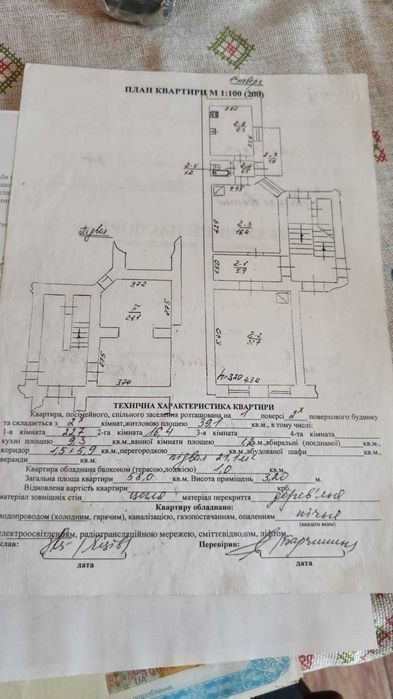 1й поверх
ПЛАН КВАРТИРИ М 1:100 (200)
260
2-6
9.3
2-7
1.0
2-5
1.2
2-4
1.5
2.75
2-3
16.4
Підвал
2-1
5.9
372
І
24.1
675
675
370
2-2
22.7
540
h=3.20
4.24
ТЕХНІЧНА ХАРАКТЕРИСТИКА КВАРТИРИ
Квартира, посімейного, спільного заселення розташована на 1 поверсі 2х поверхового будинку
та складається з 2х кімнат, житловою площею 39.1 кв.м., в тому числі:
1-а кімната 22.7 2-га кімната 16.4 3-я кімната 4-та кімната
кухні площею 9.3 кв.м., ванної кімнати площею 1.2 кв.м., вбиральні (поєднаної) кв.м.,
коридор 1.5 + 5.9 кв.м., перегородкою кв.м., вбудованої шафи кв.м.,
веранди кв.м. підвал 24.1 м²
Квартира обладнана балконом (терасою, лоджією) 1.0 кв.м.
Загальна площа квартири 58.0 кв.м. Висота приміщень 3.20 м.
Відновлена вартість квартири крб.
матеріал зовнішніх стін цегла матеріал перекриття дерев'яне
Квартиру обладнано:
водопроводом (холодним, гарячим), каналізацією, газопостачанням, опаленням пічне
(вказати яким)
електроосвітленням, радіотрансляційною мережею, сміттєвідводом, ліфтом
Перевірив:
дата дата